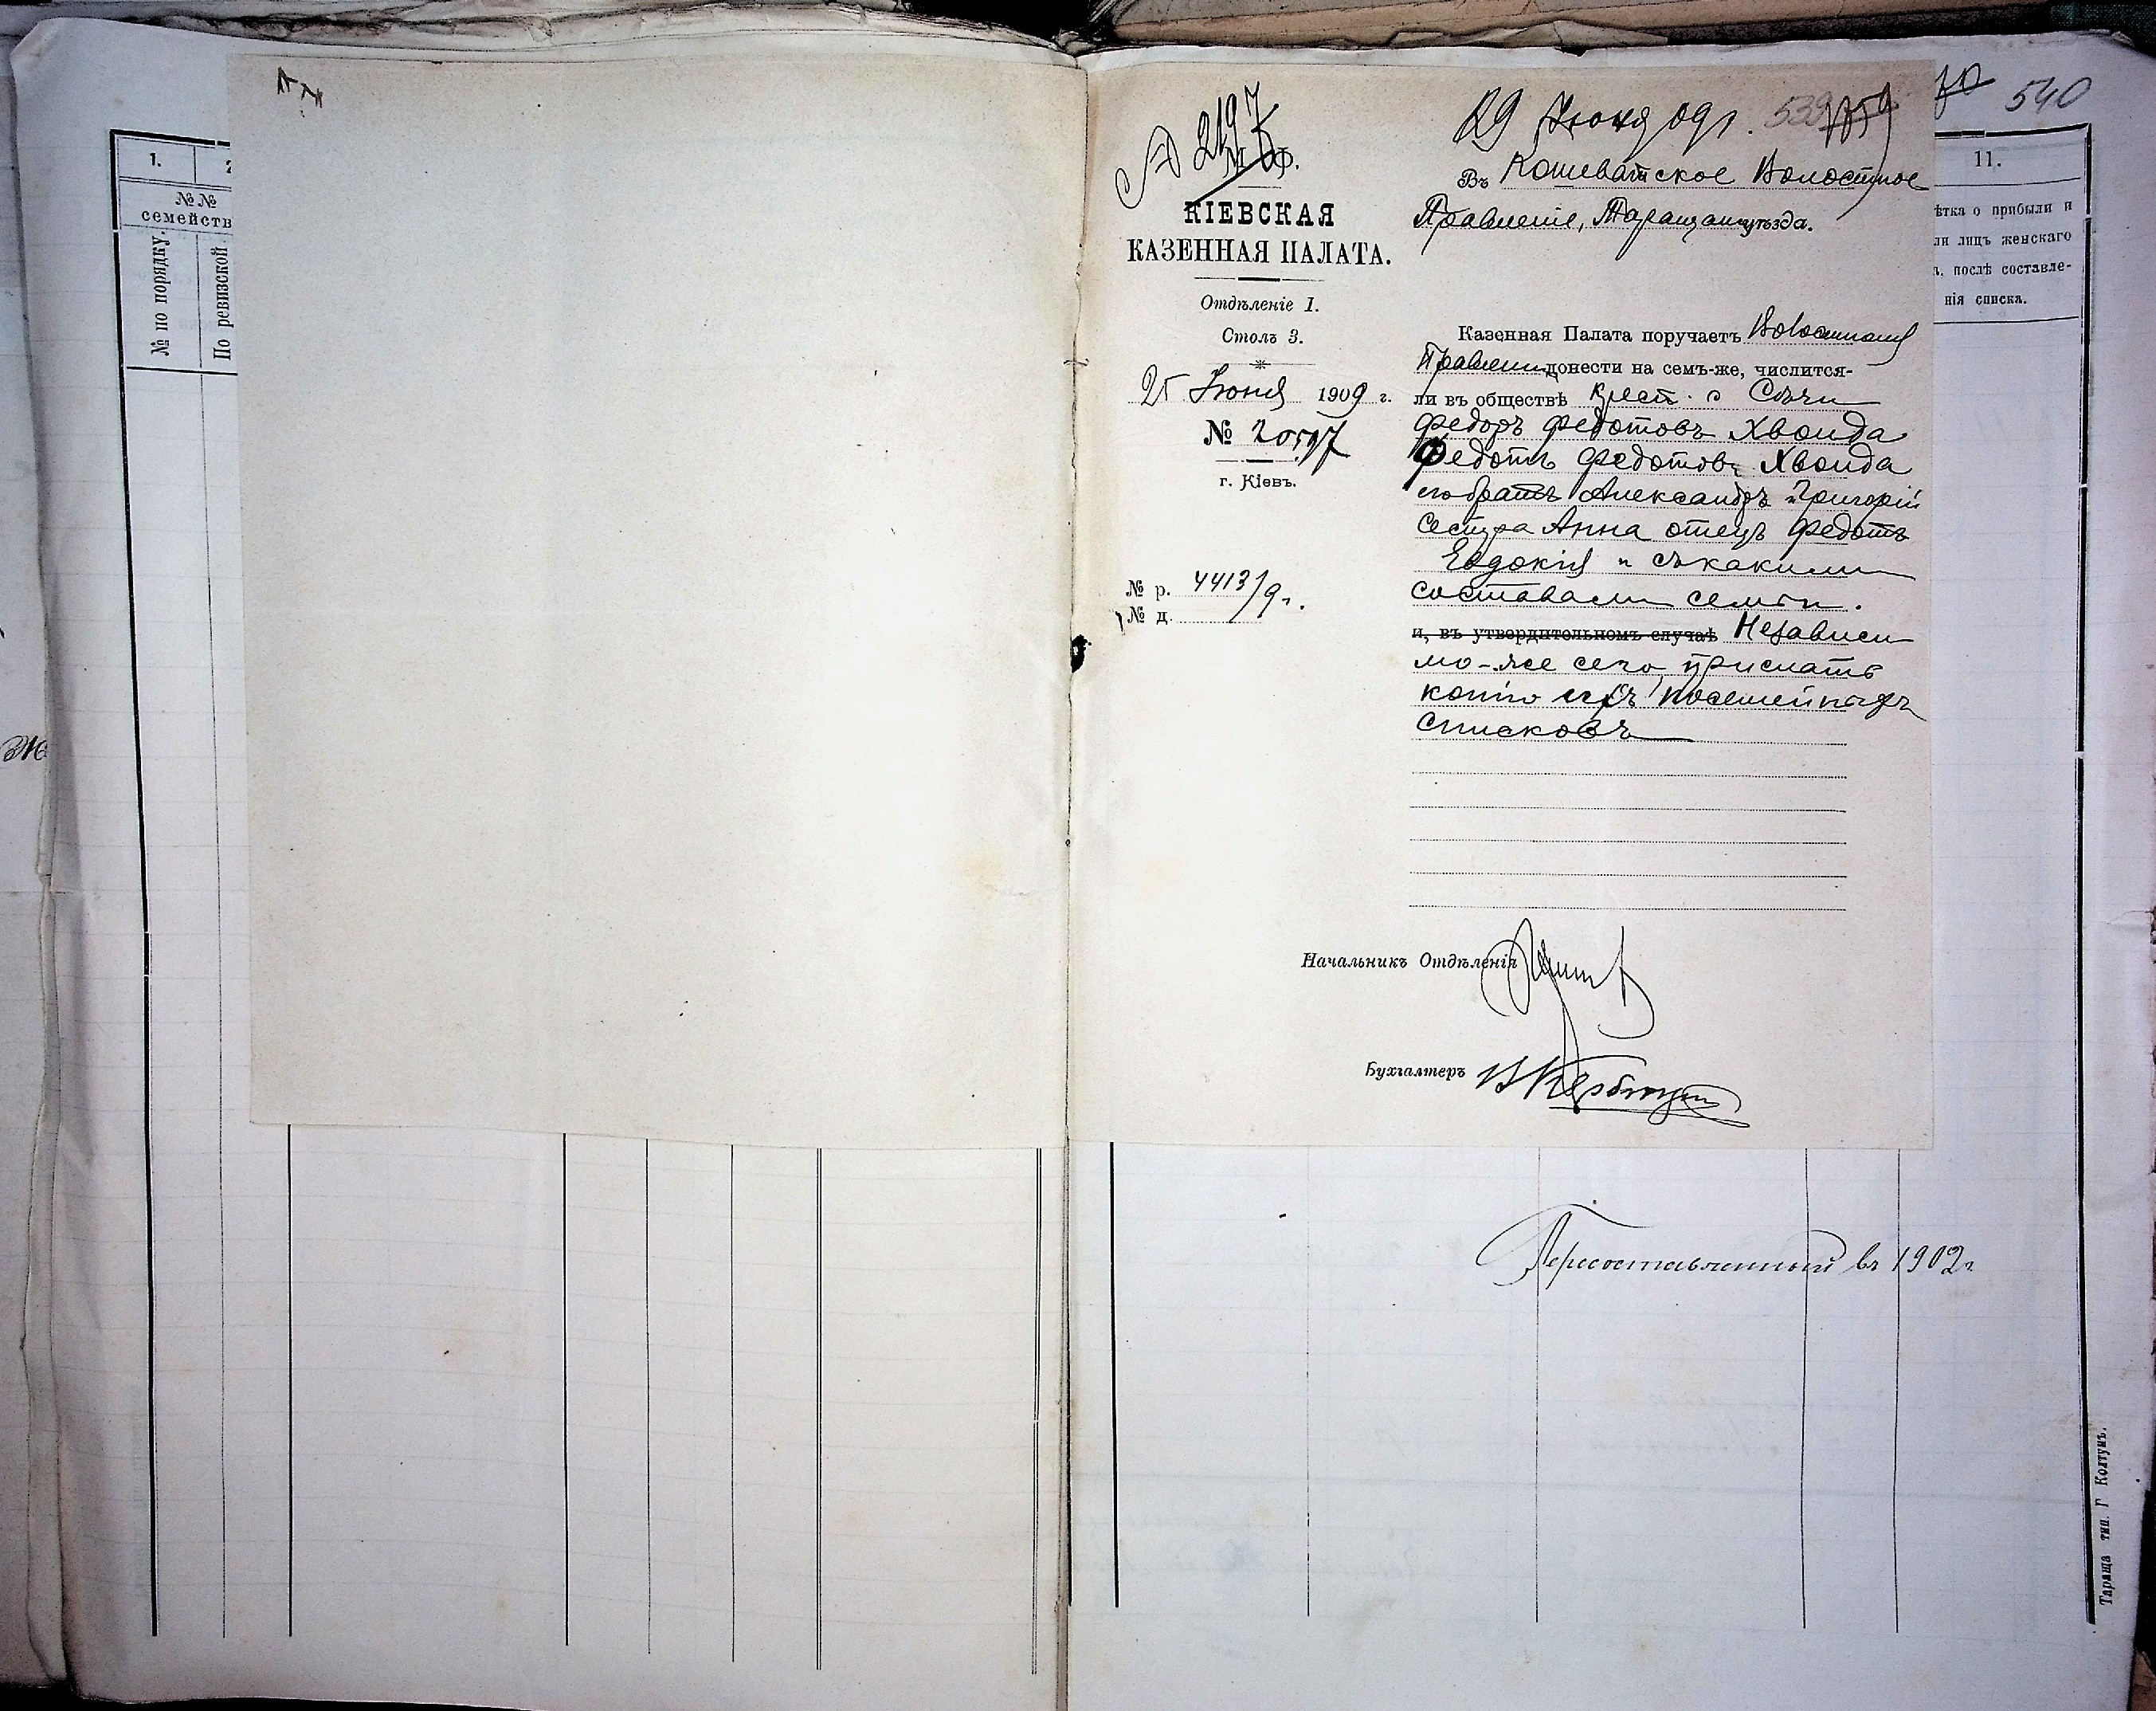 540
1.
№№
семейств
№ по порядку.
По ревизской
11.
ѣтка о прибыли и
ли лицъ женскаго
а, послѣ составле-
нія списка.
М. Ф.
КІЕВСКАЯ
КАЗЕННАЯ ПАЛАТА.
Отдѣленіе 1.
Столъ 3.
25 Іюня 1909 г.
№ 20597
г. Кіевъ.
№ р. 4413/9 г.
№ д.
29 Іюня 09 г. 539
Въ Кошеватское Волостное
Правленіе, Таращан. уѣзда.
Казенная Палата поручаетъ Волостному
Правленію донести на семъ-же, числится-
ли въ обществѣ крест. с
Федоръ Федотовъ Хвоида
Федотъ Федотовъ Хвоида
его братъ Александръ и Григорій
сестра Анна отецъ Федотъ
Евдокія и съ какими
составами семьи.
и, въ утвердительномъ случаѣ Независи
мо-же сего, прислать
копію ихъ посемейныхъ
списковъ
Начальникъ Отдѣленія
Бухгалтеръ
Пересоставленный въ 1902 г.
Тараща тип. Г Колтунъ.